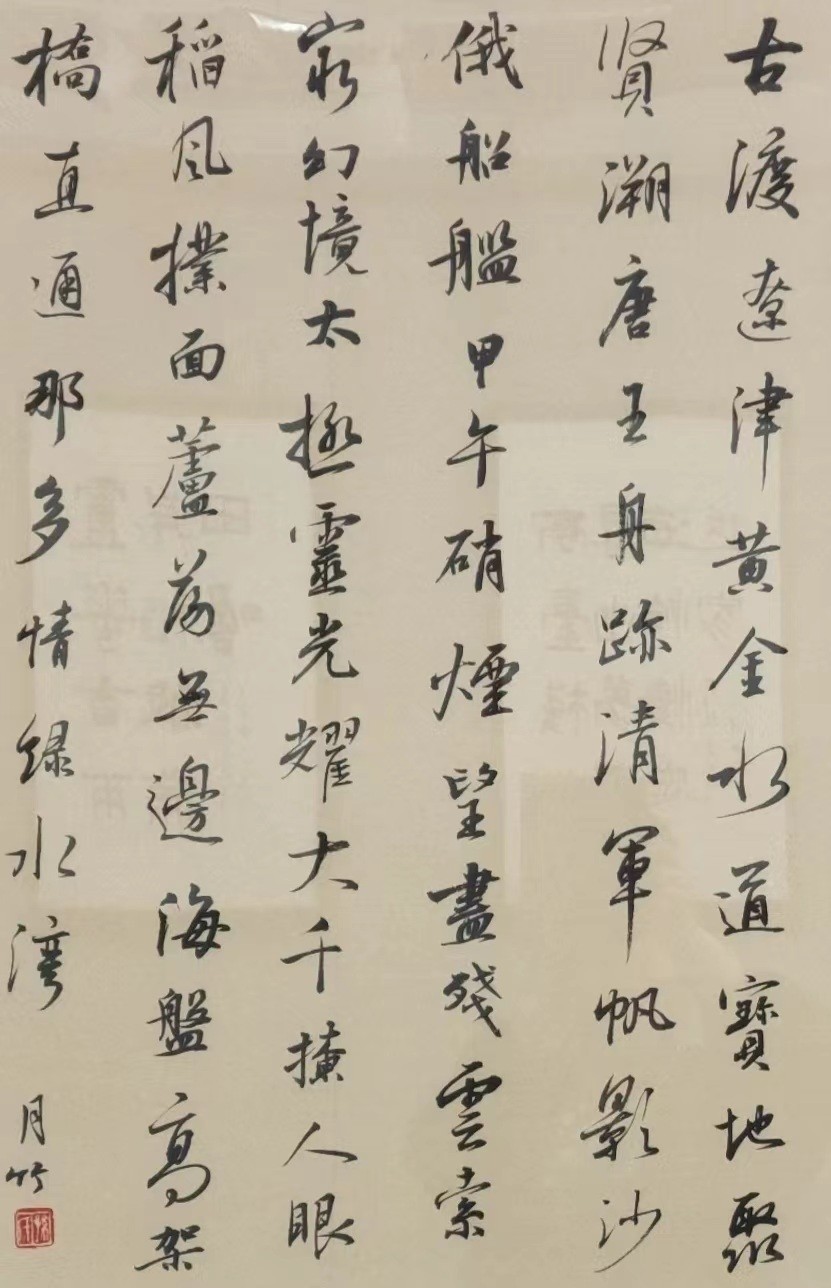 古渡遼津黄金水道寶地聚
賢溯唐王舟跡清軍帆影沙
俄船艦甲午硝煙望盡殘雲索
寂幻境太極靈光耀大千撩人眼
稻風撲面蘆蕩無邊海盤高架
橋直通那多情绿水湾
月竹